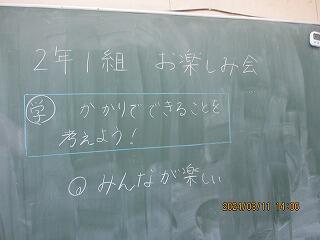 2年1組 お楽しみ会
学 かかりでできることを
考えよう!
◎みんなが楽しい
2021/03/11 14:00